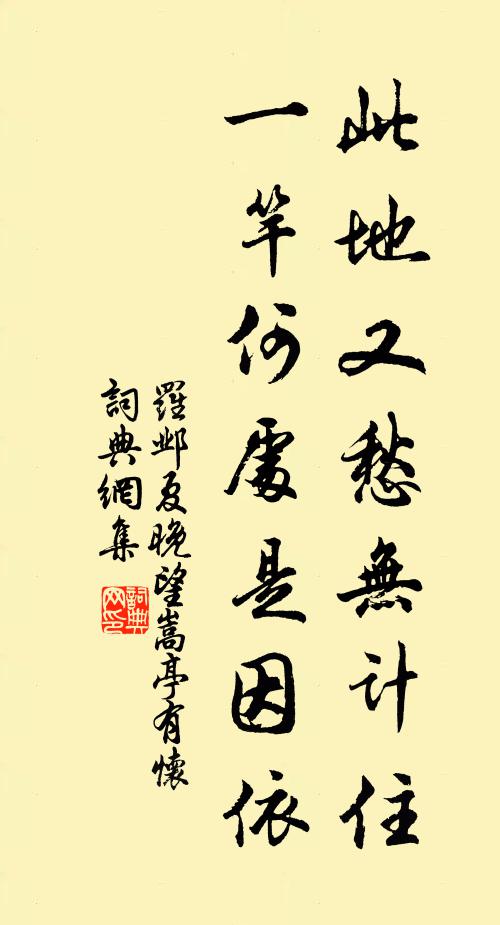 此地又愁無計住
一竿何處是因依
羅鄴夏晚望嵩亭有懷
詞典網集
詞典
网印